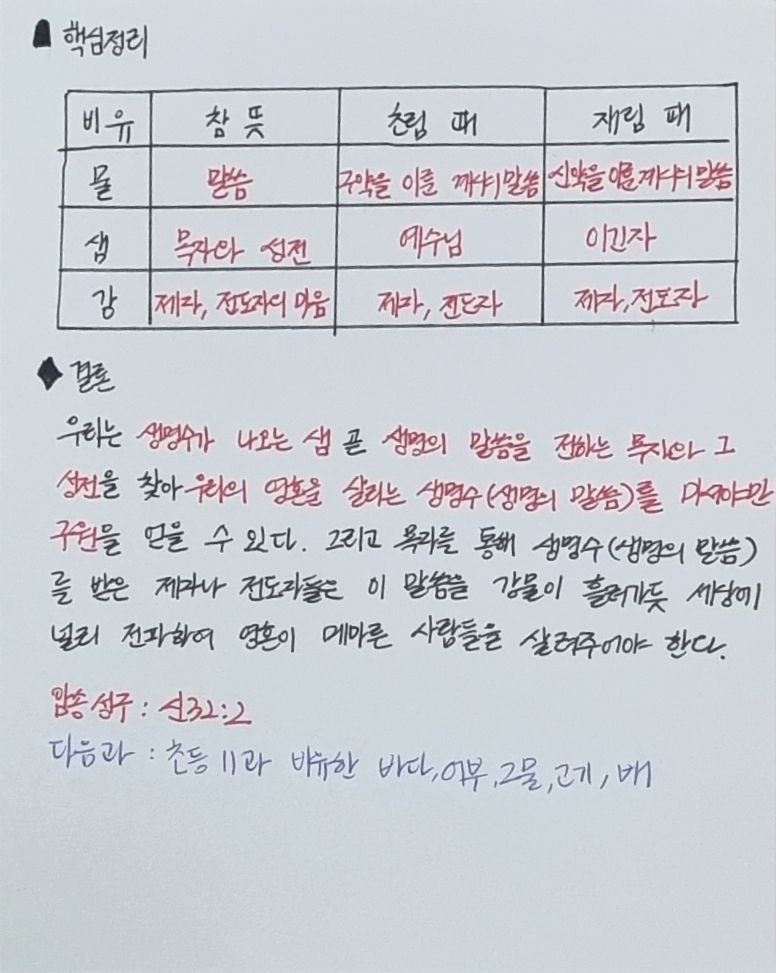 핵심정리
비유 참 뜻 초림 때 재림 때
물 말씀 구약을 이룬 계시의 말씀 신약을 이룬 계시의 말씀
샘 목자와 성전 예수님 이긴자
강 제자, 전도자의 마음 제자, 전도자 제자, 전도자
◆ 결론
우리는 생명수가 나오는 샘 곧 생명의 말씀을 전하는 목자와 그
성전을 찾아 우리의 영혼을 살리는 생명수(생명의 말씀)를 마셔야만
구원을 얻을 수 있다. 그리고 목자를 통해 생명수(생명의 말씀)
를 받은 제자나 전도자들은 이 말씀을 강물이 흘러가듯 세상에
널리 전파하여 영혼이 메마른 사람들을 살려주어야 한다.
암송성구 : 신32:2
다음과 : 초등 11과 비유한 바다, 어부, 그물, 고기, 배